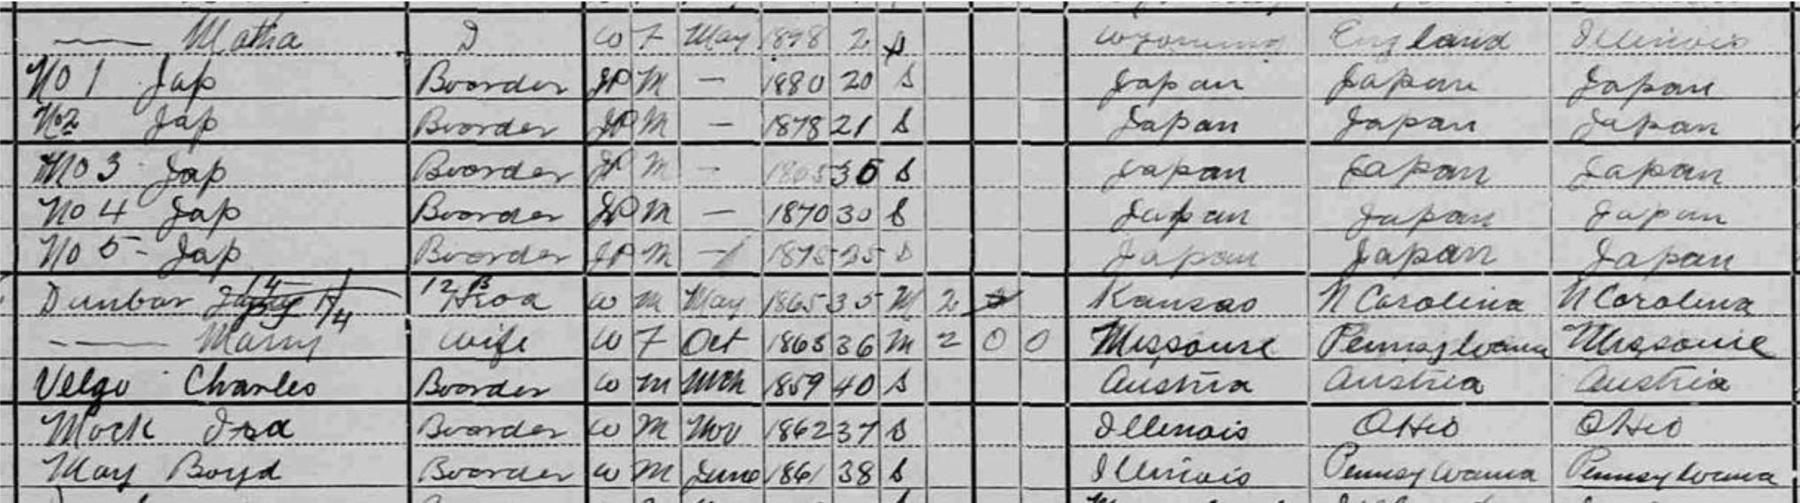 —— Matha D W F May 1898 2 S Wyoming England Illinois
No 1 Jap Boorder JP M — 1880 20 S Japan Japan Japan
No 2 Jap Boorder JP M — 1878 21 S Japan Japan Japan
No 3 Jap Boorder JP M — 1865 35 S Japan Japan Japan
No 4 Jap Boorder JP M — 1870 30 S Japan Japan Japan
No 5 - Jap Boorder JP M — 1875 25 S Japan Japan Japan
Dunbar W M May 1865 35 M 2 Kansas N Carolina N Carolina
—— Mary Wife W F Oct 1863 36 M 2 0 0 Missouri Pennsylvania Missouri
Velgo Charles Boorder W M Mch 1859 40 S Austria Austria Austria
Mock Ira Boorder W M Nov 1862 37 S Illinois Ohio Ohio
May Boyd Boorder W M June 1861 38 S Illinois Pennsylvania Pennsylvania